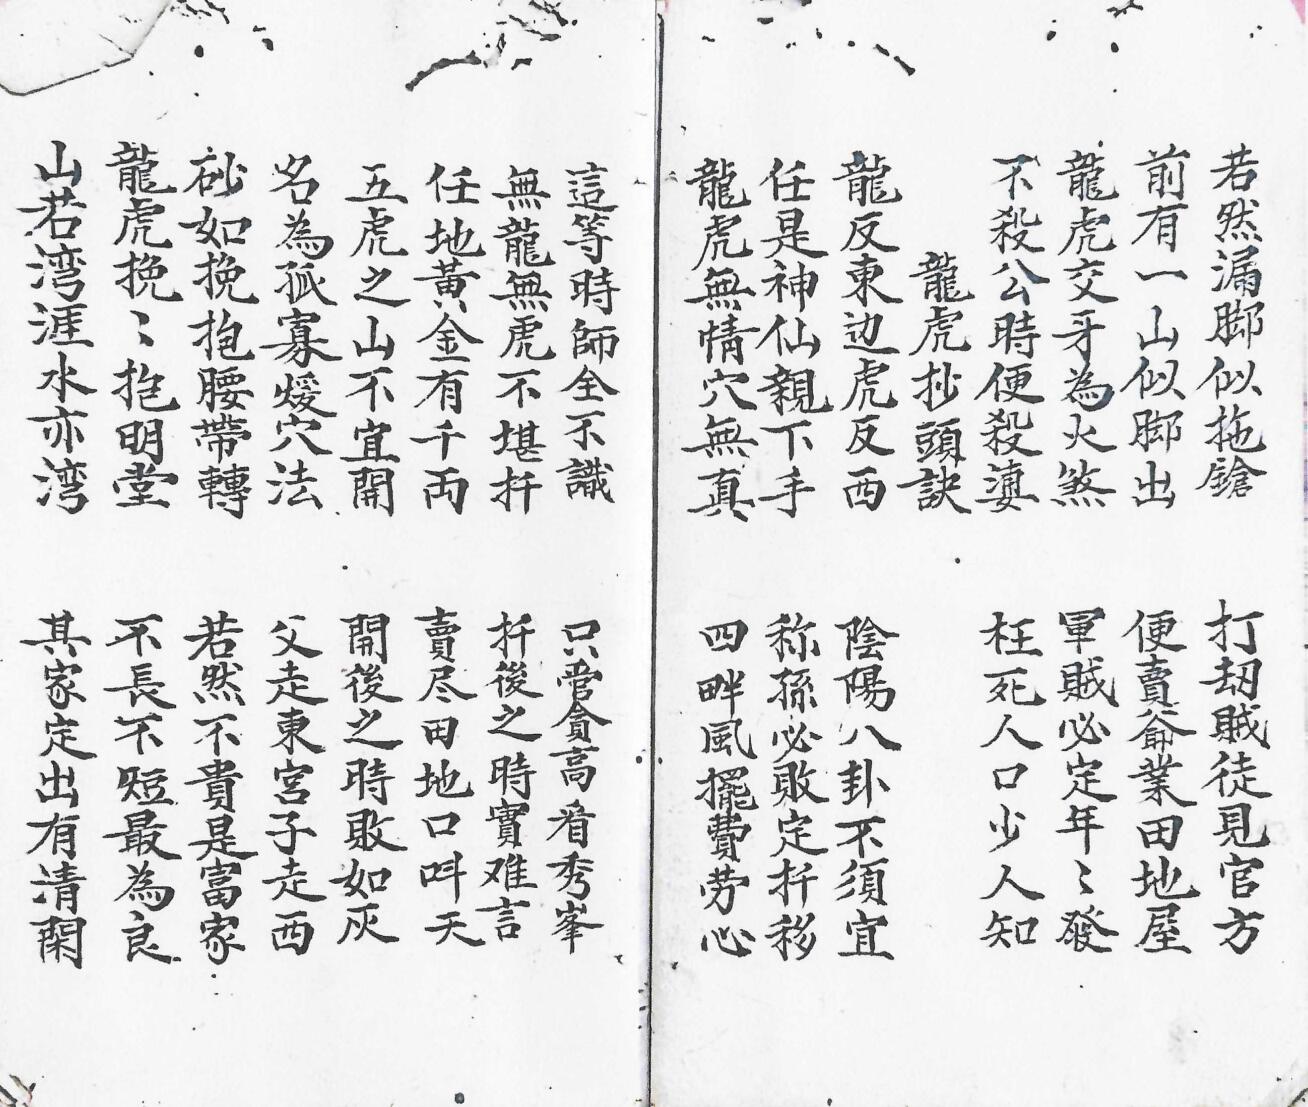 若然漏脚似拖鎗 打刼賊徒見官方
前有一山似脚出 便賣爺業田地屋
龍虎交牙為火煞 軍賊必定年〻發
不殺公時便殺婆 枉死人口少人知
龍虎抄頭訣
龍反東边虎反西 陰陽八卦不須宜
任是神仙親下手 称孫必敗定扦移
龍虎無情穴無真 四畔風擺費劳心
這等時師全不識 只管貪高看秀峯
無龍無虎不堪扦 扦後之時實难言
任地黃金有千両 賣尽田地口呌天
五虎之山不宜開 開後之時敗如灰
名為孤寡煖穴法 父走東宮子走西
砂如挽抱腰帶轉 若然不貴是富家
龍虎挽〻抱明堂 不長不短最為良
山若湾涯水亦湾 其家定出有清閑